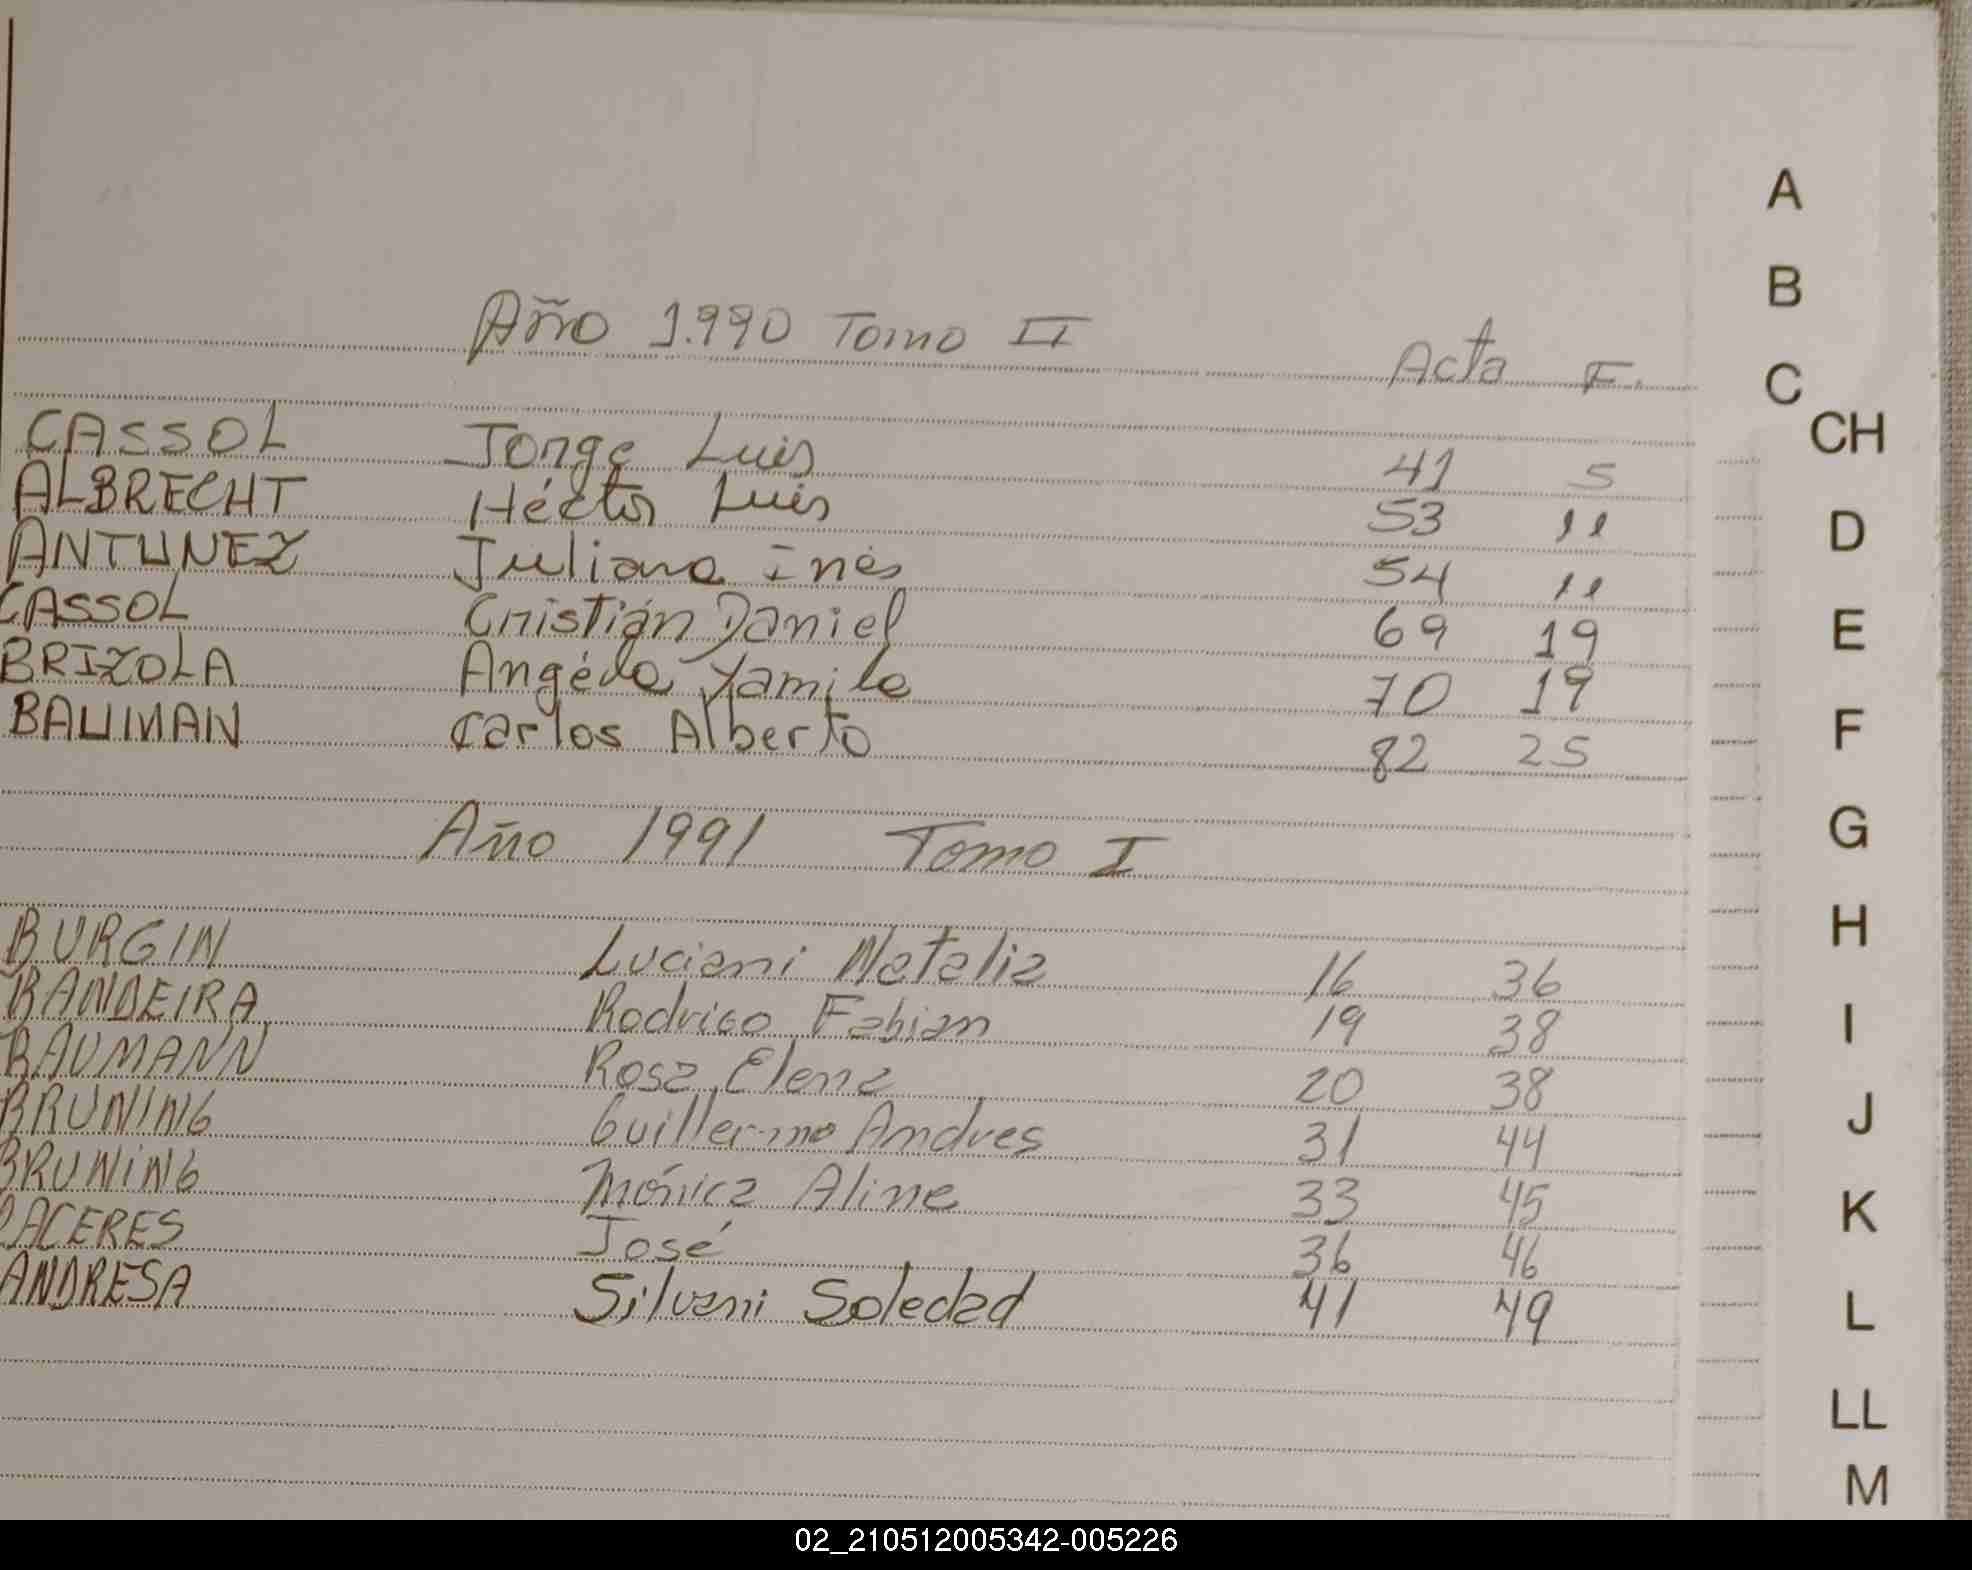 Año 1.990 Tomo II Acta F.
CASSOL Jorge Luis 41 5
ALBRECHT Héctor Luis 53 11
ANTUNEZ Juliana Inés 54 11
CASSOL Cristián Daniel 69 19
BRIZOLA Angéla Yamila 70 19
BAUMAN Carlos Alberto 82 25
Año 1991 Tomo I
BURGIN Luciani Natalia 16 36
BANDEIRA Rodrigo Fabian 19 38
BAUMANN Rosa Elena 20 38
BRUNING Guillermo Andres 31 44
BRUNING Mónica Aline 33 45
CACERES José 36 46
ANDRESA Silvani Soledad 41 49
A
B
C
CH
D
E
F
G
H
I
J
K
L
LL
M
02_210512005342-005226